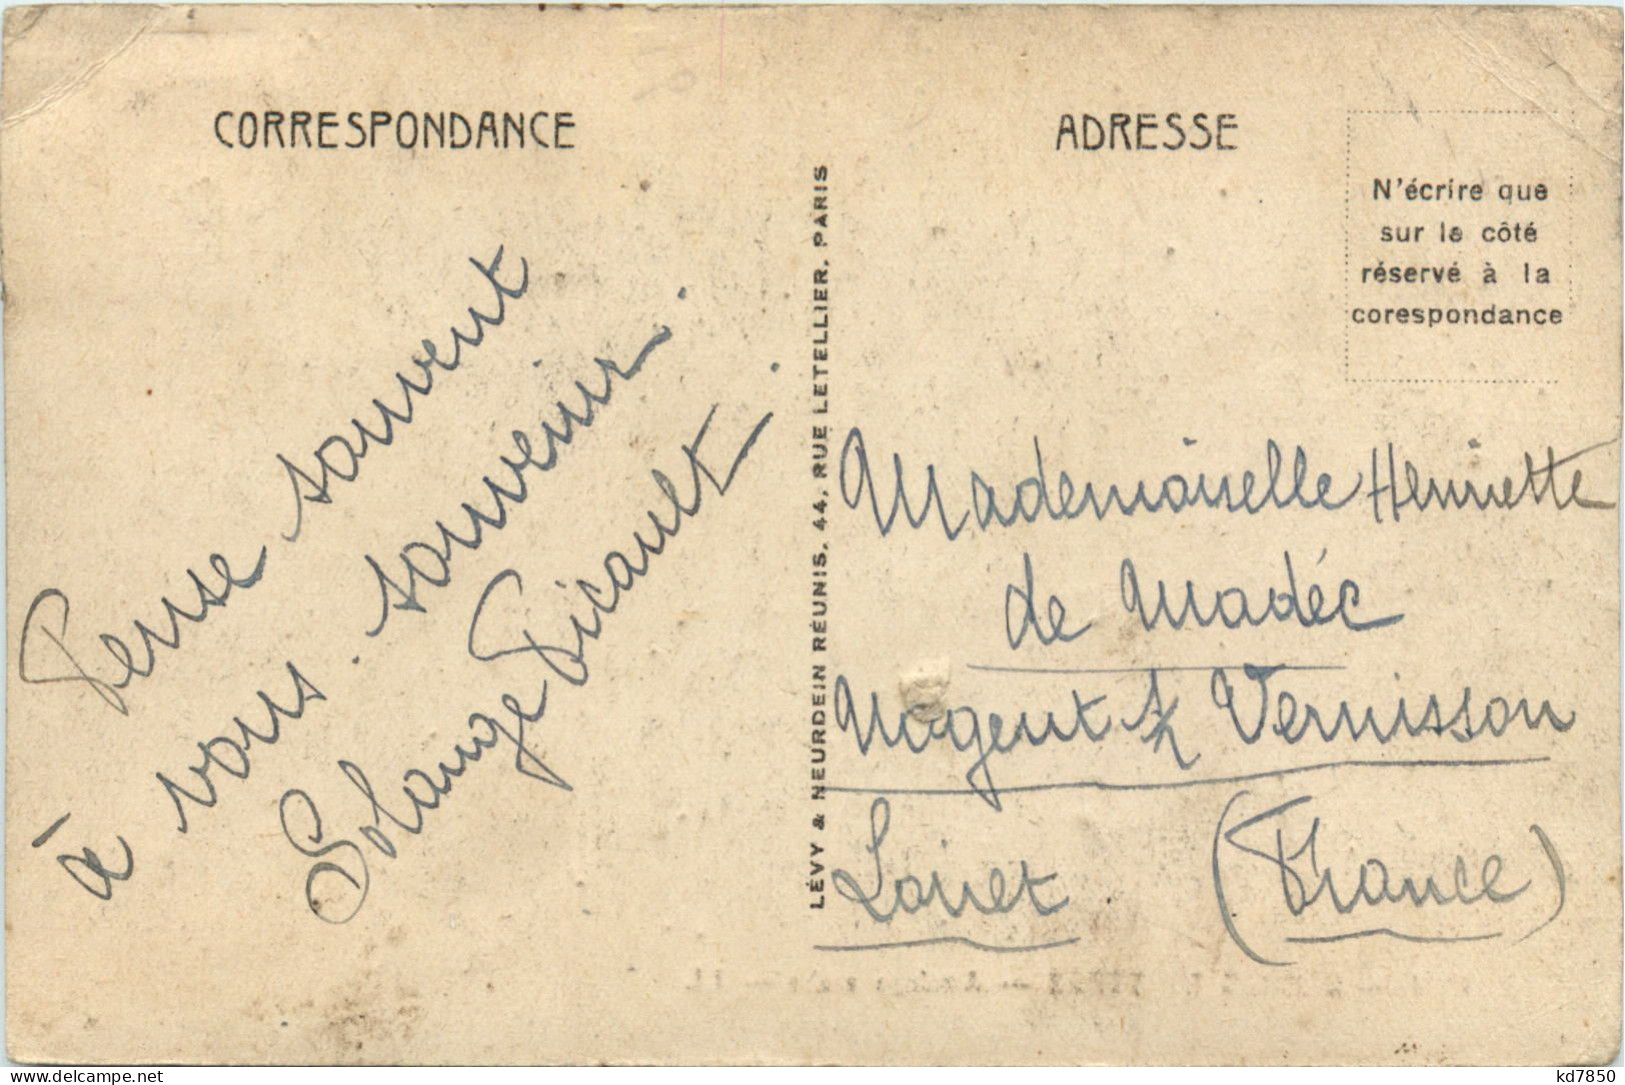 CORRESPONDANCE
Pense souvent
à vous. souvenir.
Solange Picault.
LÉVY & NEURDEIN RÉUNIS, 44, RUE LETELLIER, PARIS
ADRESSE
N'écrire que
sur le côté
réservé à la
corespondance
Mademoiselle Henriette
de Madéc
Nogent s/ Vernisson
Loiret (France)
www.delcampe.net
kd7850